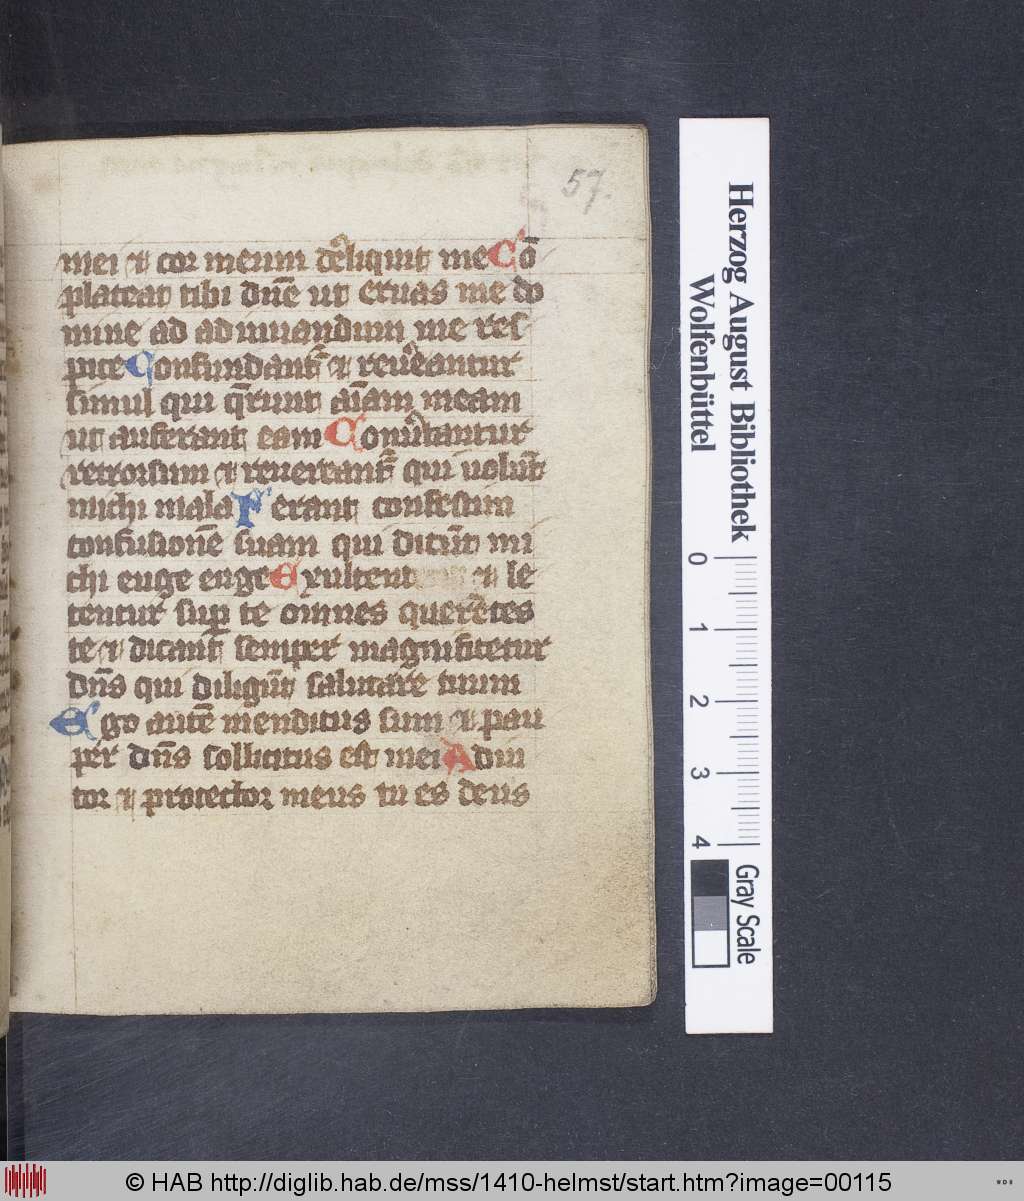 57.
mei ⁊ cor meum de͛liquit me Cō
placeat tibi dn̄e ut eruas me do
mine ad adiuuandum me res
pice Confundant᷑ ⁊ reue͛antur
simul qui q̄runt aīam meam
ut auferant eam Conue͛tantur
retrorsum ⁊ reuereant᷑ qui uolūt
michi mala Ferant confestim
confusionē suam qui dicūt mi
chi euge euge Exultent ⁊ le
tentur suꝑ te omnes querētes
te ⁊ dicant semper magnificetur
dn̄s qui diligūt salutare tuum
Ego autē mendicus sum ⁊ pau
per dn̄s sollicitus est mei Adiu
tor ⁊ protector meus tu es deus
Herzog August Bibliothek
Wolfenbüttel
0 1 2 3 4
Gray Scale
© HAB http://diglib.hab.de/mss/1410-helmst/start.htm?image=00115